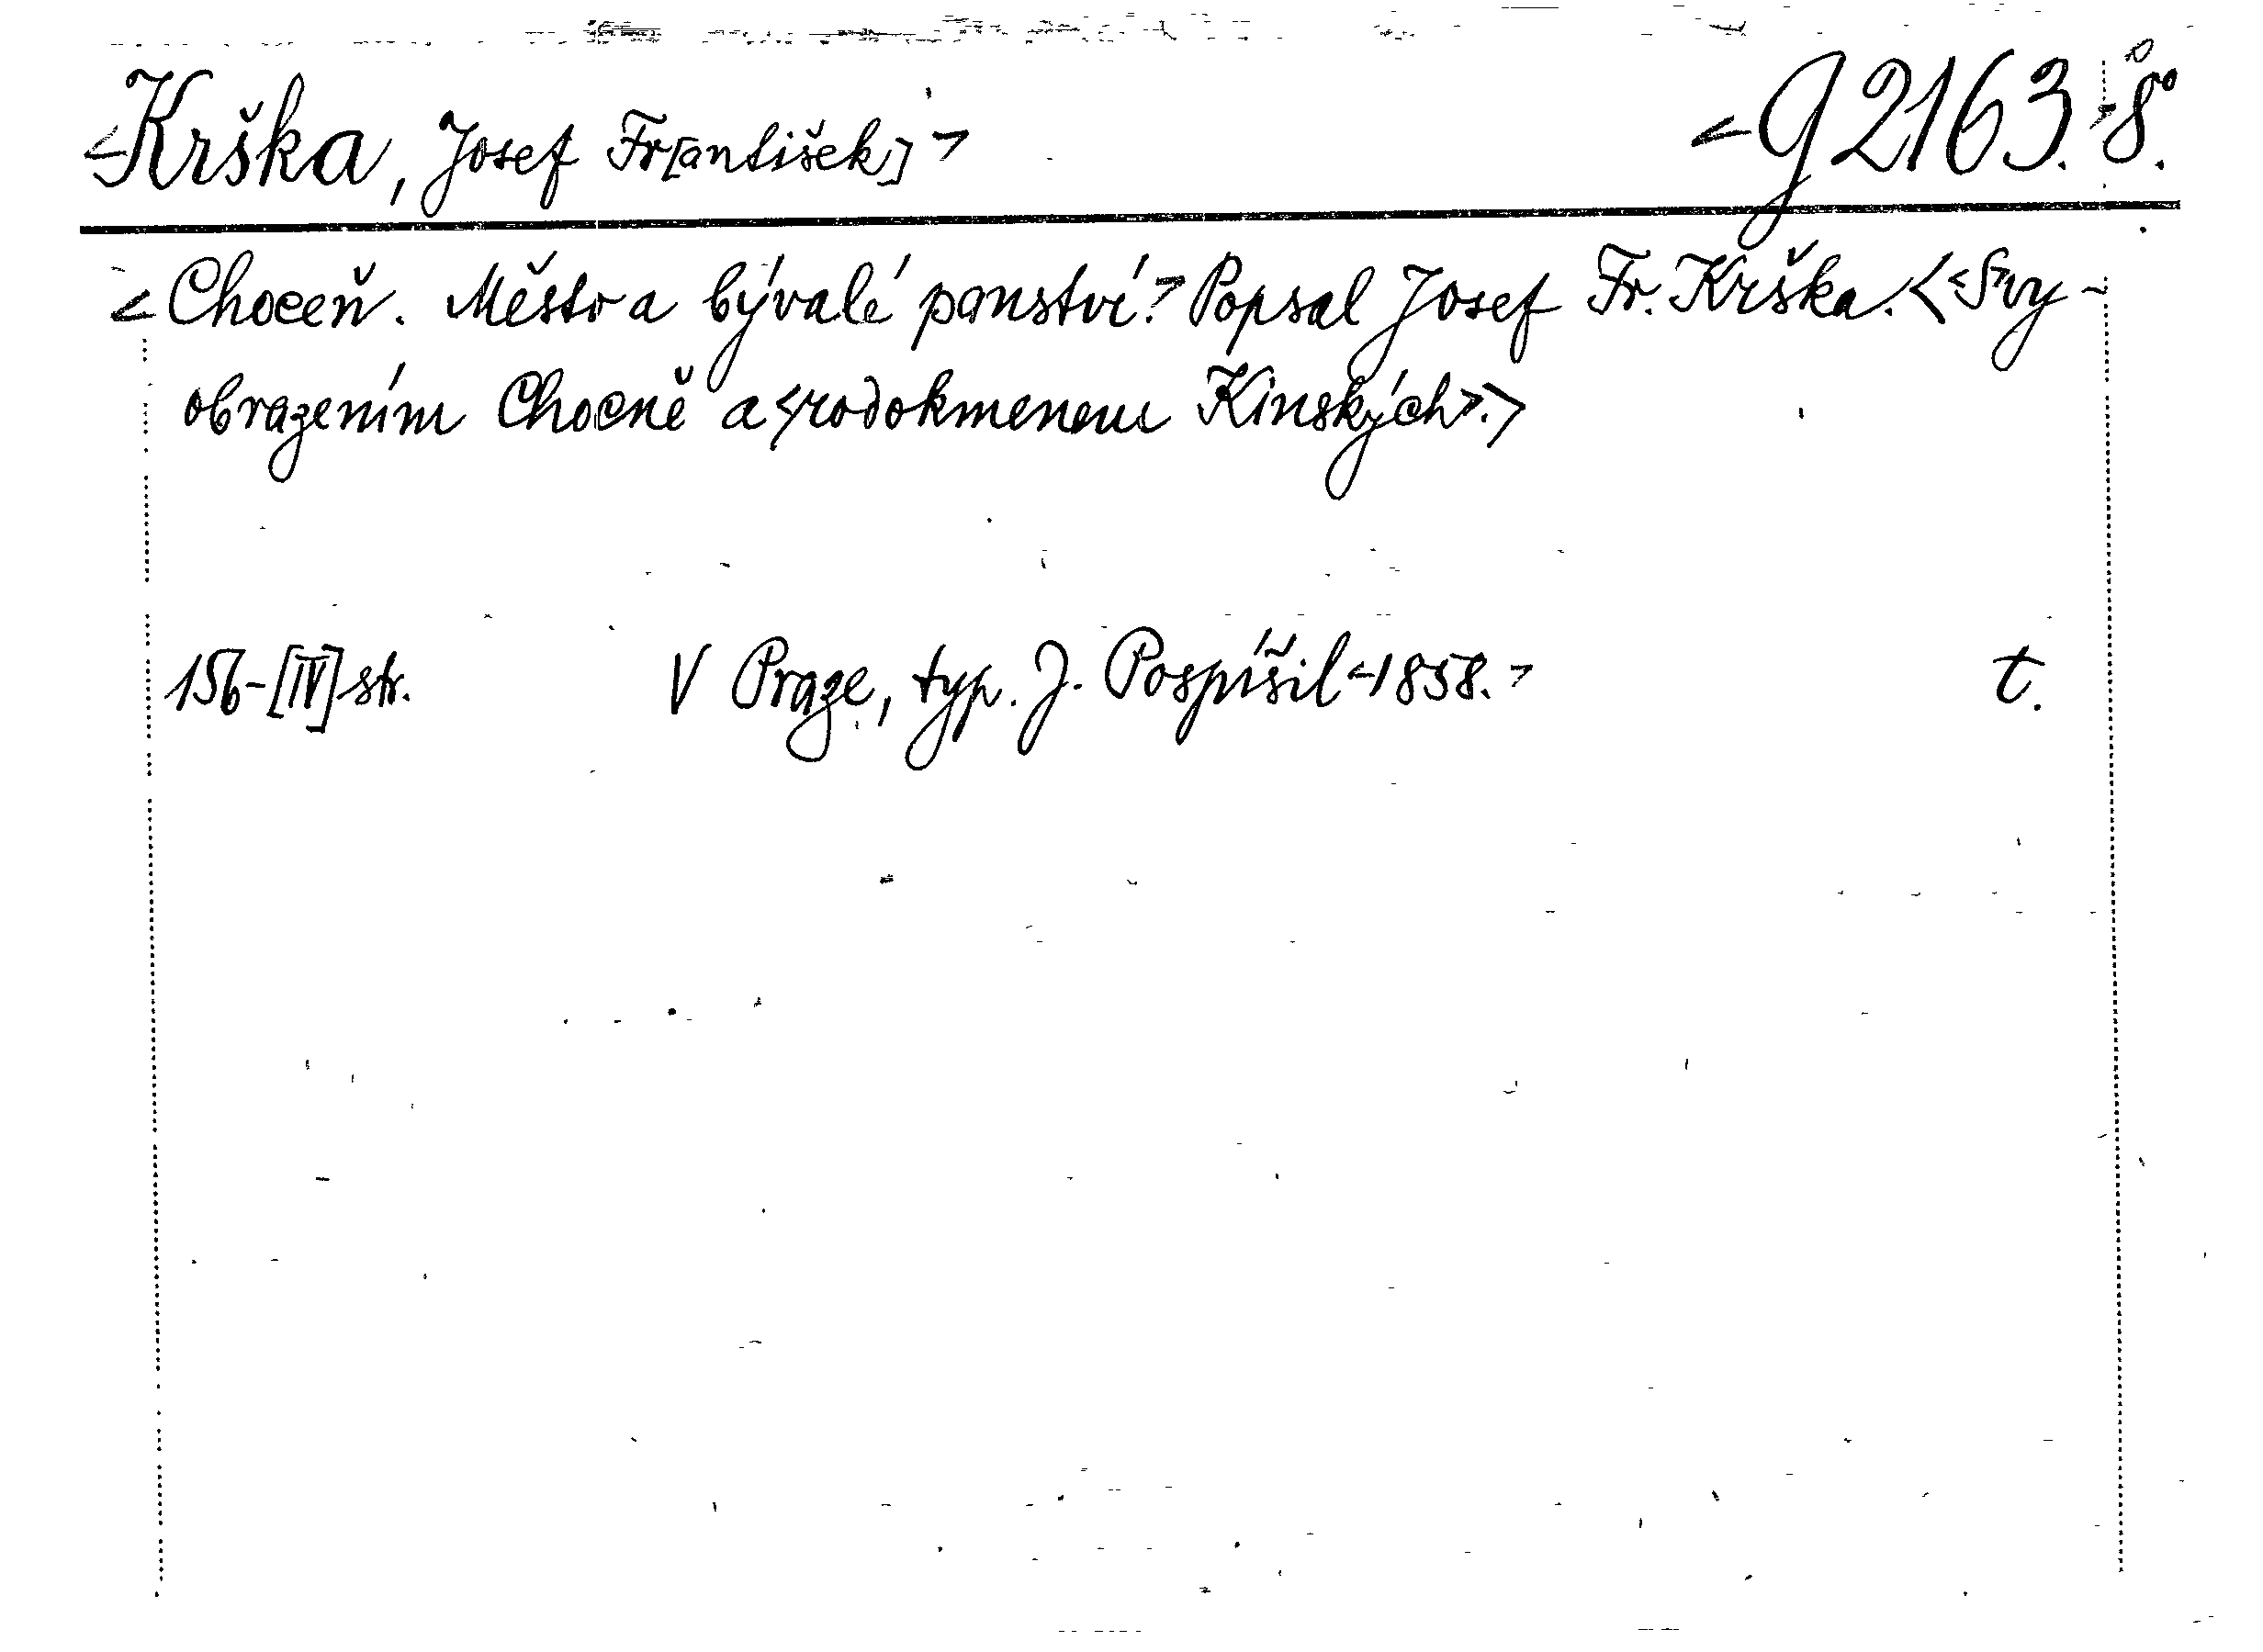 <Krška, Josef Fr[antišek]> <g 2163.> 8°.
<Choceň. Město a bývalé panství.> Popsal Josef Fr. Krška. < <S> vy-
obrazením Chocně a <rodokmenem Kinských>.>
156-[IV] str. V Praze, typ. J. Pospíšil <1858.> t.